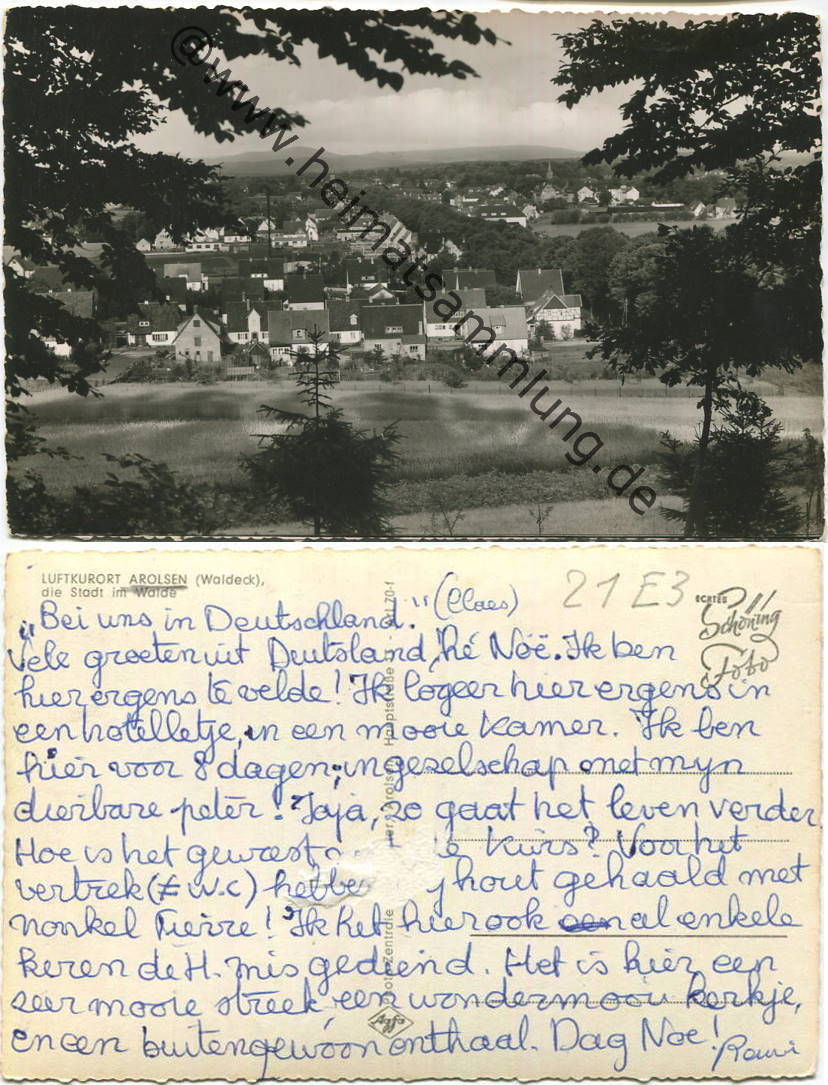 ©www.heimatsammlung.de
LUFTKURORT AROLSEN (Waldeck),
die Stadt im Walde
21 E3
ECHTES
Schöning
Foto
"Bei uns in Deutschland." (Claes)
Vele groeten uit Deutsland, hé Noë. Ik ben
hier ergens te velde! Ik logeer hier ergens in
een hotelletje, in een mooie kamer. Ik ben
hier voor 8 dagen, in gezelschap met myn
dierbare peter! Jaja, zo gaat het leven verder
Hoe is het geweest de Kürs? Voor het
vertrek (≠ w.c) hebben hout gehaald met
nonkel Pierre! Ik heb hier ook al enkele
keren de H. mis gediend. Het is hier een
zeer mooie streek, een wondermooi kerkje,
en een buitengewoon onthaal. Dag Noë!
Agfa